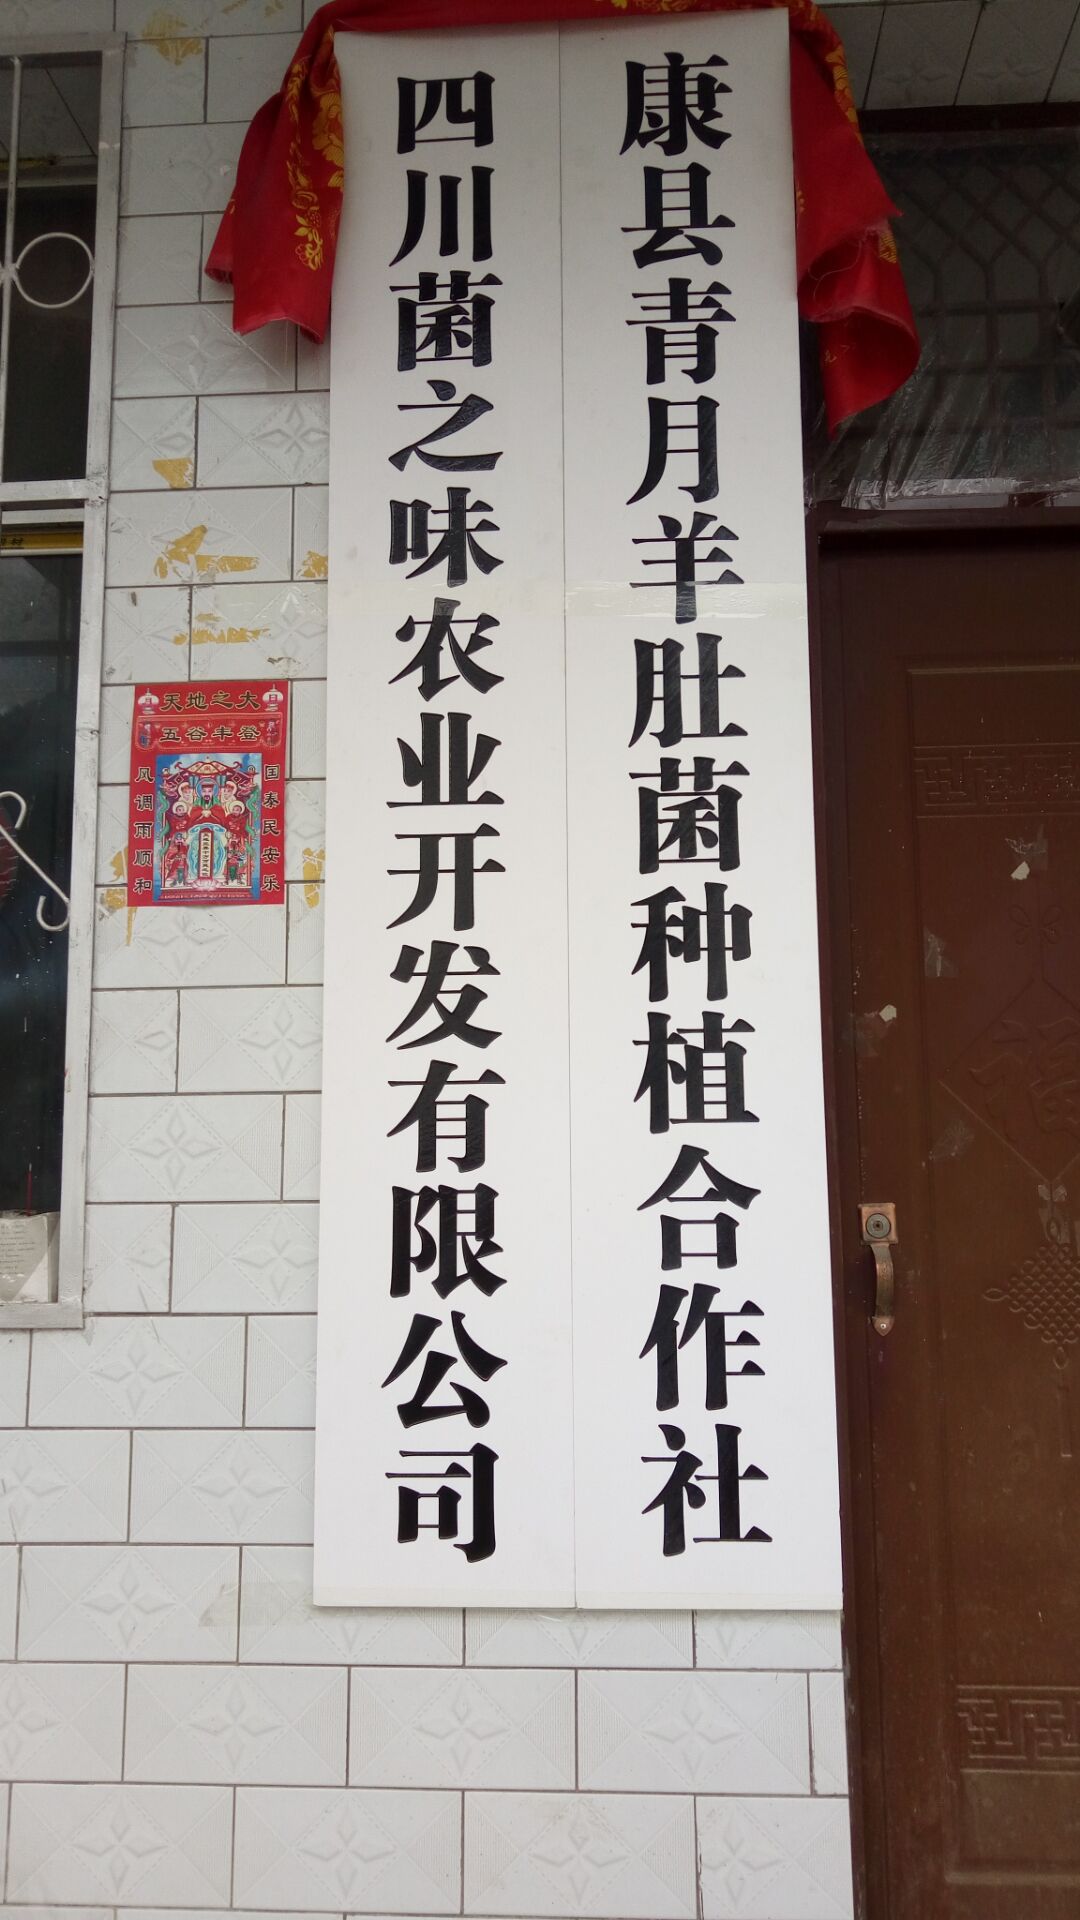 康县青月羊肚菌种植合作社
四川菌之味农业开发有限公司
天地之大
五谷丰登
国泰民安乐
风调雨顺和